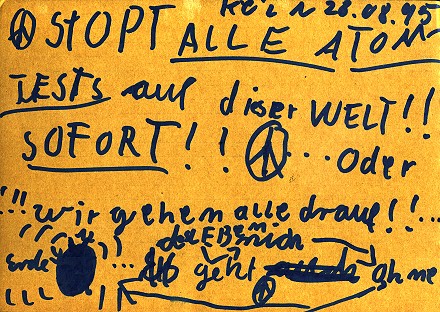 KÖLN 28.08.95
STOPT ALLE ATOM
TESTS auf dieser WELT!!
SOFORT!! ... Oder
!!! wir gehen alle drauf!!...
Erde ... geht ohne